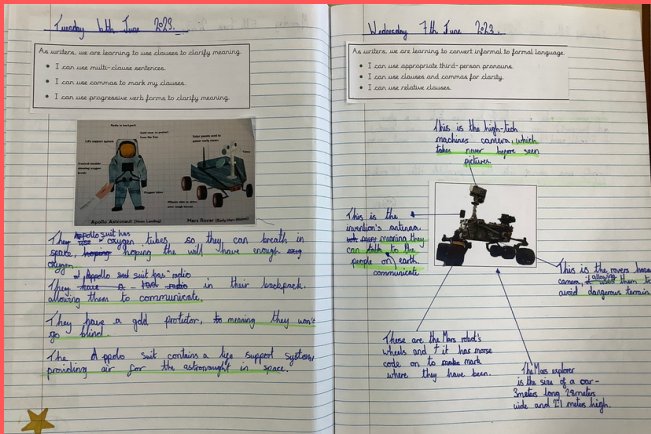 Tuesday 6th June 2023.
As writers, we are learning to use clauses to clarify meaning.
I can use multi-clause sentences.
I can use commas to mark my clauses.
I can use progressive verb forms to clarify meaning.
Apollo Astronaut (Moon Landing)
Mars Rover
Apollo suit has
They oxygen tubes so they can breath in
space, hoping the will have enough
oxygen.
Appollo suit has radio
They have a in their backpack.
allowing them to communicate.
They have a gold protictor, to meaning they won't
go blind.
The Appolo suit contains a life support system,
providing air for the astronaught in space.
Wednesday 7th June 2023.
As writers, we are learning to convert informal to formal language.
I can use appropriate third-person pronouns.
I can use clauses and commas for clarity.
I can use relative clauses.
This is the high-tech
machines camera, which
takes never before seen
pictures.
This is the
invention's antenna,
meaning they
can talk to the
people on earth.
communicate
This is the rovers
camera, allowing them to
avoid dangerous terrain
These are the Mars robot's
wheels and it has morse
code on to mark
where they have been.
The Mars explorer
is the size of a car-
3meters long 2.8meters
wide and 2.1 meters high.